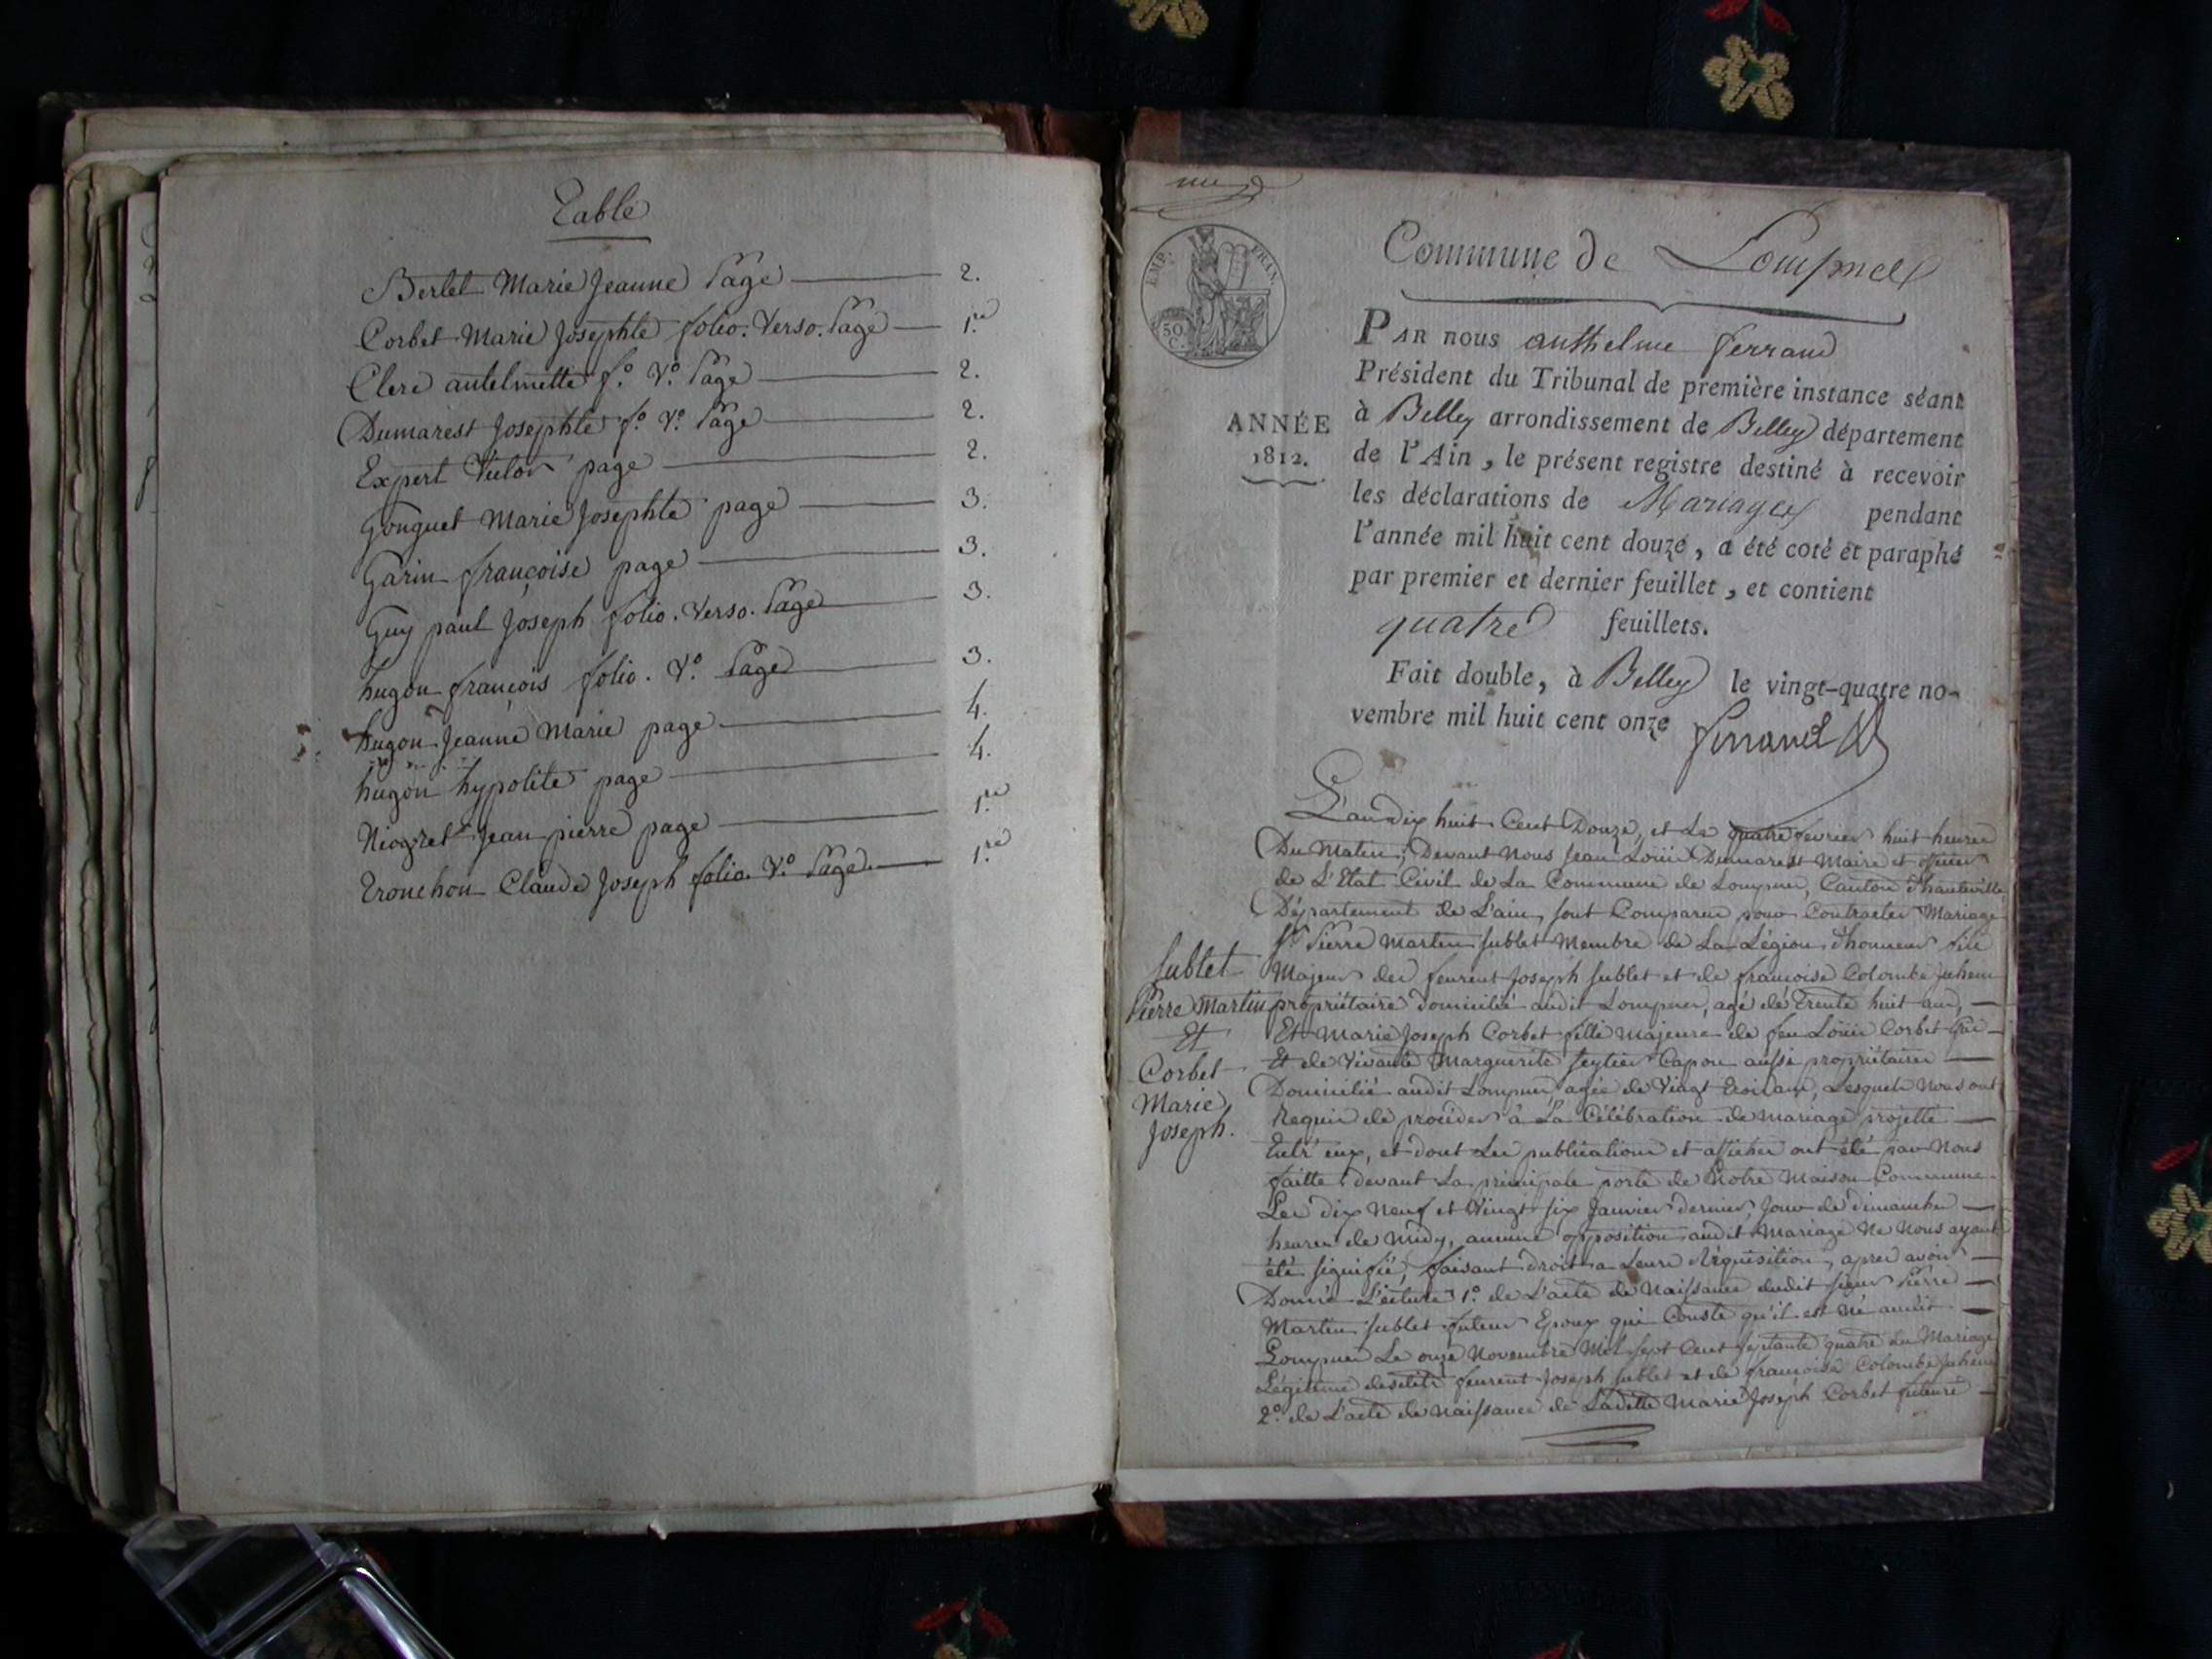 Table
Berlet Marie Jeanne Page 2.
Corbet Marie Josephte folio. Verso. Page 1.re
Clerc antelmette f.o V.o Page 2.
Dumarest Josephte f.o V.o Page 2.
Expert Victor page 2.
Gonguet Marie Josephte page 3.
Garin françoise page 3.
Guy paul Joseph folio. Verso. Page 3.
hugon françois folio. V.o Page 3.
hugon Jeanne Marie page 4.
hugon hypolite page 4.
Niogret Jean pierre page 1.re
Tronchon Claude Joseph folio. V.o Page 1.re
EMP. FRAN.
50 C.
ANNÉE
1812.
Commune de Lompnes
PAR nous anthelme ferrand
Président du Tribunal de première instance séant
à Belley arrondissement de Belley département
de l'Ain, le présent registre destiné à recevoir
les déclarations de Mariages pendant
l'année mil huit cent douze, a été coté et paraphé
par premier et dernier feuillet, et contient
quatre feuillets.
Fait double, à Belley le vingt-quatre no-
vembre mil huit cent onze ferrand
L'an dix huit Cent Douze, et Le quatre fevrier huit heures
Du Matin; Devant Nous Jean Loüis Dumarest Maire et officier
de L'Etat Civil de La Commune de Lompnes, Canton d'hauteville
Département de L'ain, sont Comparus pour Contracter Mariage
Sr Pierre Martin Sublet Membre de La Légion d'honneur fils
Majeur des feurent Joseph Sublet et de françoise Colombe
propriétaire Domicilié audit Lompnes, agé de Trente huit ans,
Et Marie Joseph Corbet fille Majeure de feu Loüis Corbet
Et de Vivante Marguerite Seytier Capon aussi propriétaires
Domicilié audit Lompnes, agée de Vingt trois ans, Lesquels Nous ont
Requis de procéder à La Célébration de Mariage projetté
Entr'eux, et dont Les publications et affiches ont été par Nous
faitte devant La principale porte de Notre Maison Commune
Les dix Neuf et Vingt six Janvier dernier, Jour de dimanches
heures de Midy, aucune opposition audit Mariage Ne Nous ayant
été signifié, faisant droit a Leurs Réquisition, apres avoir
Donné Lecture 1.o de L'acte de Naissance dudit sieur Pierre
Martin Sublet futeur Epoux qui Conste qu'il est Né audit
Lompnes Le onze Novembre Mil sept Cent septante quatre du Mariage
Légitime desdits feurent Joseph Sublet et de françoise Colombe
2.o de L'acte de Naissance de Ladite Marie Joseph Corbet future
Sublet
Pierre Martin
Et
Corbet
Marie
Joseph.